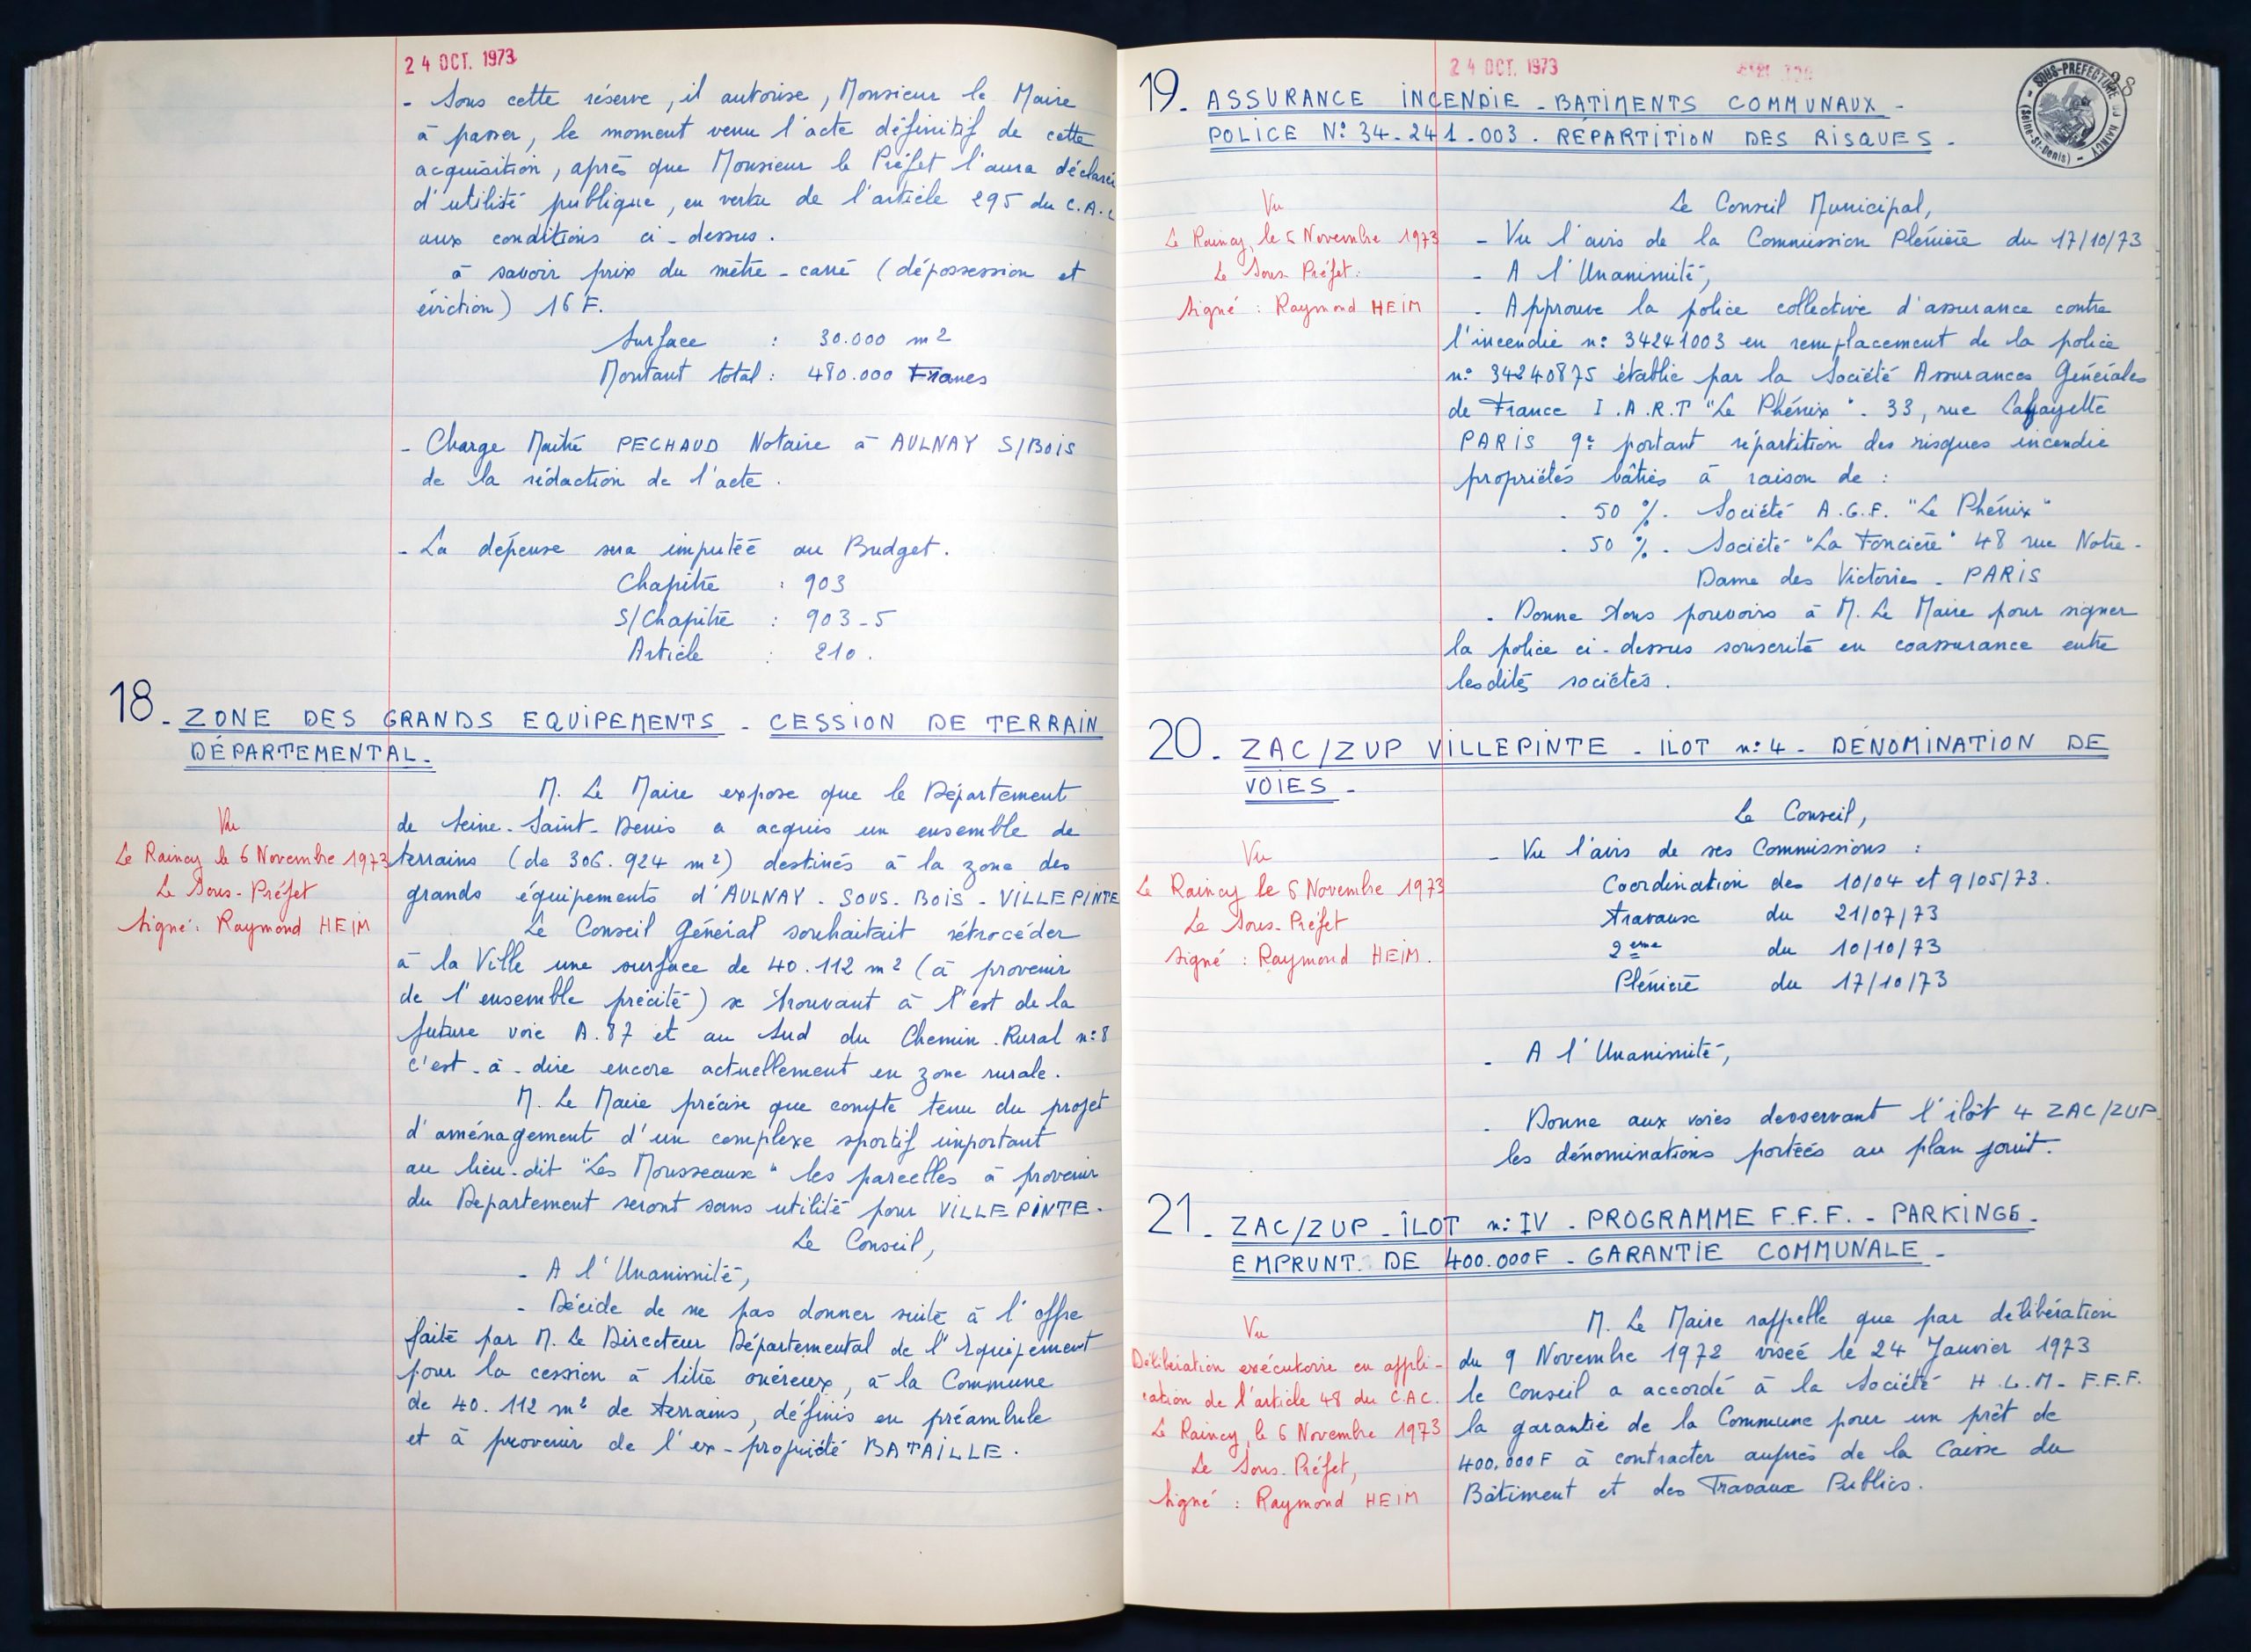 24 OCT. 1973
- Sous cette réserve, il autorise, Monsieur le Maire
à passer, le moment venu l'acte définitif de cette
acquisition, après que Monsieur le Préfet l'aura déclarée
d'utilité publique, en vertu de l'article 295 du C.A.C
aux conditions ci-dessus.
à savoir prix du mètre-carré (dépossession et
éviction) 16 F.
Surface : 30.000 m2
Montant total : 480.000 Francs
- Charge Maître PECHAUD Notaire à AULNAY S/BOIS
de la rédaction de l'acte.
- La dépense sera imputée au Budget.
Chapitre : 903
S/Chapitre : 903-5
Article : 210.
18 - ZONE DES GRANDS EQUIPEMENTS - CESSION DE TERRAIN
DÉPARTEMENTAL.
Vu
Le Raincy le 6 Novembre 1973
Le Sous-Préfet
Signé : Raymond HEIM
M. Le Maire expose que le Département
de Seine-Saint-Denis a acquis un ensemble de
terrains (de 306.924 m2) destinés à la zone des
grands équipements d'AULNAY-SOUS-BOIS - VILLEPINTE
Le Conseil Général souhaitait rétrocéder
à la Ville une surface de 40.112 m2 (à provenir
de l'ensemble précité) se trouvant à l'est de la
future voie A.87 et au Sud du Chemin Rural n:8
c'est-à-dire encore actuellement en zone rurale.
M. Le Maire précise que compte tenu du projet
d'aménagement d'un complexe sportif important
au lieu-dit "Les Mousseaux" les parcelles à provenir
du Departement seront sans utilité pour VILLEPINTE.
Le Conseil,
- A l'Unanimité,
- Décide de ne pas donner suite à l'offre
faite par M. Le Directeur Départemental de l'Equipement
pour la cession à titre onéreux, à la Commune
de 40.112 m2 de terrains, définis en préambule
et à provenir de l'ex-propriété BATAILLE.
24 OCT. 1973
SOUS-PREFECTURE DU RAINCY
- (Seine-St-Denis) -
19 - ASSURANCE INCENDIE - BATIMENTS COMMUNAUX -
POLICE N: 34-241-003. REPARTITION DES RISQUES -
Vu
Le Raincy, le 6 Novembre 1973
Le Sous-Préfet.
Signé : Raymond HEIM
Le Conseil Municipal,
- Vu l'avis de la Commission Plénière du 17/10/73
- A l'Unanimité,
- Approuve la police collective d'assurance contre
l'incendie n: 34241003 en remplacement de la police
n: 34240875 établie par la Société Assurances Générales
de France I.A.R.T "Le Phénix". 33, rue Lafayette
PARIS 9e portant répartition des risques incendie
propriétés bâties à raison de :
. 50 %. Société A.G.F. "Le Phénix"
. 50 %. Société "La Foncière" 48 rue Notre-
Dame des Victoires - PARIS
. Donne tous pouvoirs à M. Le Maire pour signer
la police ci-dessus souscrite en coassurance entre
lesdites sociétés.
20 - ZAC/ZUP VILLEPINTE - ILOT n:4 - DÉNOMINATION DE
VOIES -
Vu
Le Raincy le 6 Novembre 1973
Le Sous-Préfet
Signé : Raymond HEIM.
Le Conseil,
- Vu l'avis de ses Commissions :
Coordination des 10/04 et 9/05/73.
travaux du 21/07/73
2ème du 10/10/73
Plénière du 17/10/73
- A l'Unanimité,
. Donne aux voies desservant l'ilôt 4 ZAC/ZUP
les dénominations portées au plan joint.
21 - ZAC/ZUP - ÎLOT n:IV - PROGRAMME F.F.F. - PARKINGS -
EMPRUNT DE 400.000F - GARANTIE COMMUNALE -
Vu
Délibération exécutoire en appli-
cation de l'article 48 du C.A.C.
Le Raincy, le 6 Novembre 1973
Le Sous-Préfet,
Signé : Raymond HEIM
M. Le Maire rappelle que par délibération
du 9 Novembre 1972 visée le 24 Janvier 1973
le Conseil a accordé à la Société H.L.M- F.F.F.
la garantie de la Commune pour un prêt de
400.000F à contracter auprès de la Caisse du
Bâtiment et des Travaux Publics.